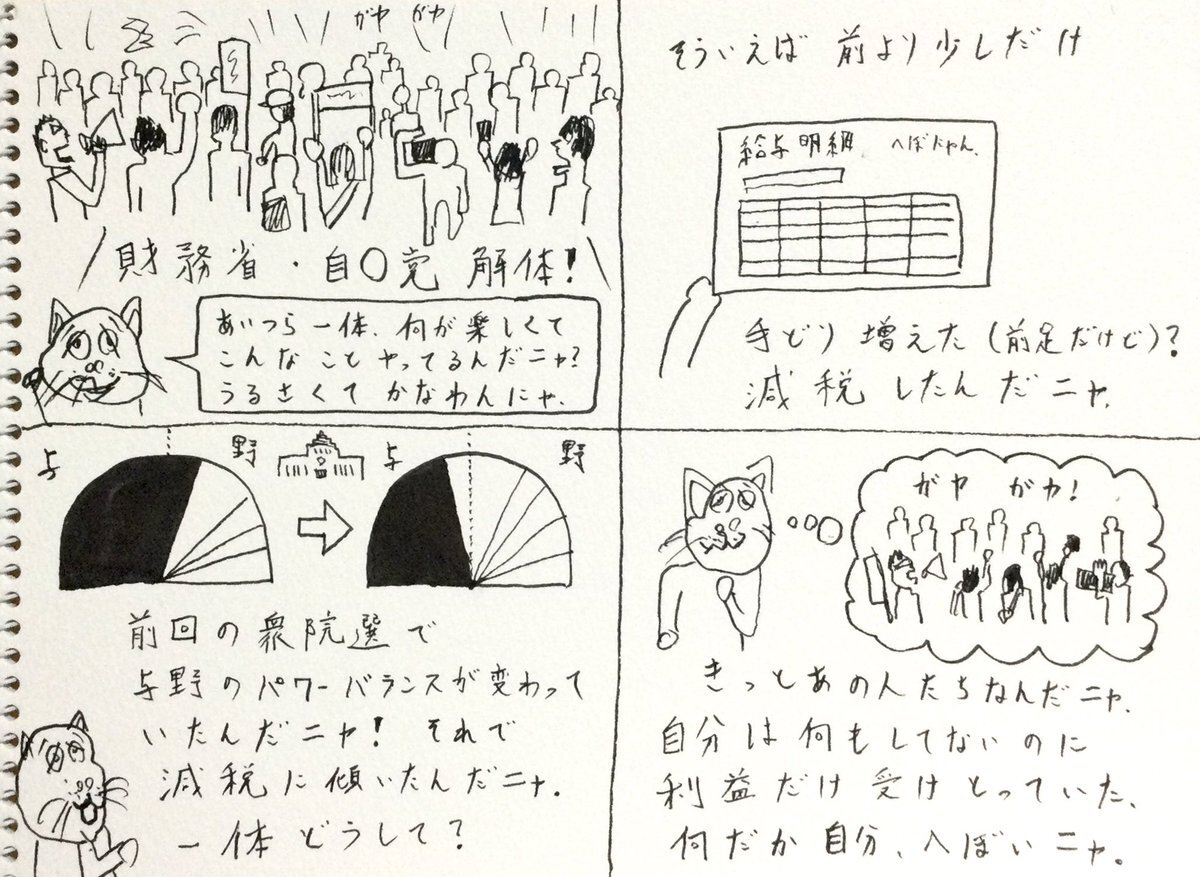 ガヤ ガヤ
財務省・自〇党 解体!
あいつら一体、何が楽しくて
こんなことやってるんだニャ?
うるさくてかなわんにゃ.
そういえば 前より少しだけ
給与明細 へぼにゃん.
手どり 増えた(前足だけど)?
減税したんだニャ.
与 野 与 野
前回の衆院選で
与野のパワーバランスが変わって
いたんだニャ! それで
減税に傾いたんだニャ.
一体どうして?
ガヤ ガヤ!
きっとあの人たちなんだニャ.
自分は何もしてないのに
利益だけ受けとっていた、
何だか自分、へぼいニャ。